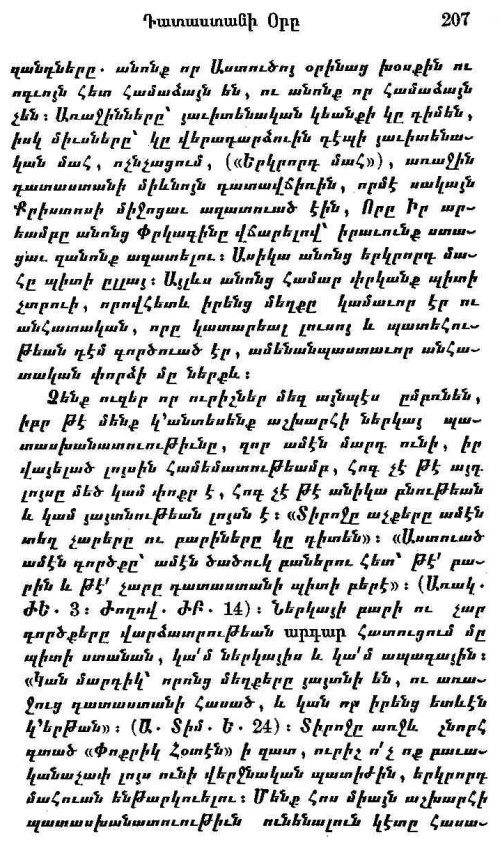 Դատաստանի Օրը 207
զանդները. անոնք որ Աստուծոյ օրինաց խօսքին ու
ոգւոյն հետ համաձայն են, ու անոնք որ համաձայն
չեն: Առաջինները՝ յաւիտենական կեանքի կը դիմեն,
իսկ միւսները՝ կը վերադարձուին դէպի յաւիտենա-
կան մահ, ոչնչացում, («Երկրորդ մահ»), առաջին
դատաստանի միևնոյն դատավճիռին, որմէ սակայն
Քրիստոսի միջոցաւ ազատուած էին, Որը Իր ար-
եամբը անոնց Փրկագինը վճարելով՝ իրաւունք ստա-
ցաւ զանոնք ազատելու: Ասիկա անոնց երկրորդ մա-
հը պիտի ըլլայ: Այլևս անոնց համար փրկանք պիտի
չտրուի, որովհետև իրենց մեղքը կամաւոր էր ու
անհատական, որը կատարեալ լուսոյ և պատեհու-
թեան դէմ գործուած էր, ամենանպաստաւոր անհա-
տական փորձի մը ներքև:
Չենք ուզեր որ ուրիշներ մեզ այնպէս ըմբռնեն,
իբր թէ մենք կ՚անտեսենք աշխարհի ներկայ պա-
տասխանատուութիւնը, զոր ամէն մարդ ունի, իր
վայելած լոյսին համեմատութեամբ, հոգ չէ թէ այդ
լոյսը մեծ կամ փոքր է, հոգ չէ թէ անիկա բնութեան
և կամ յայտնութեան լոյսն է: «Տիրոջը աչքերը ամէն
տեղ չարերը ու բարիները կը դիտեն»: «Աստուած
ամէն գործքը՝ ամէն ծածուկ բաներու հետ՝ թէ՛ բա-
րին և թէ՛ չարը դատաստանի պիտի բերէ»: (Առակ.
ԺԵ. 3: Ժողով. ԺԲ. 14): Ներկայի բարի ու չար
գործքերը վարձատրութեան արդար հատուցում մը
պիտի ստանան, կա՛մ ներկայիս և կա՛մ ապագային:
«Կան մարդիկ՝ որոնց մեղքերը յայտնի են, ու առա-
ջուց դատաստանի հասած, և կան որ իրենց ետևէն
կ՚երթան»: (Ա. Տիմ. Ե. 24): Տիրոջը առջև շնորհ
գտած «Փոքրիկ Հօտէն» ի զատ, ուրիշ ո՛չ ոք բաւա-
կանաչափ լոյս ունի վերջնական պատիժին, երկրորդ
մահուան ենթարկուելու: Մենք հոս միայն աշխարհի
պատասխանատուութիւն ունենալուն կէտը հասա-